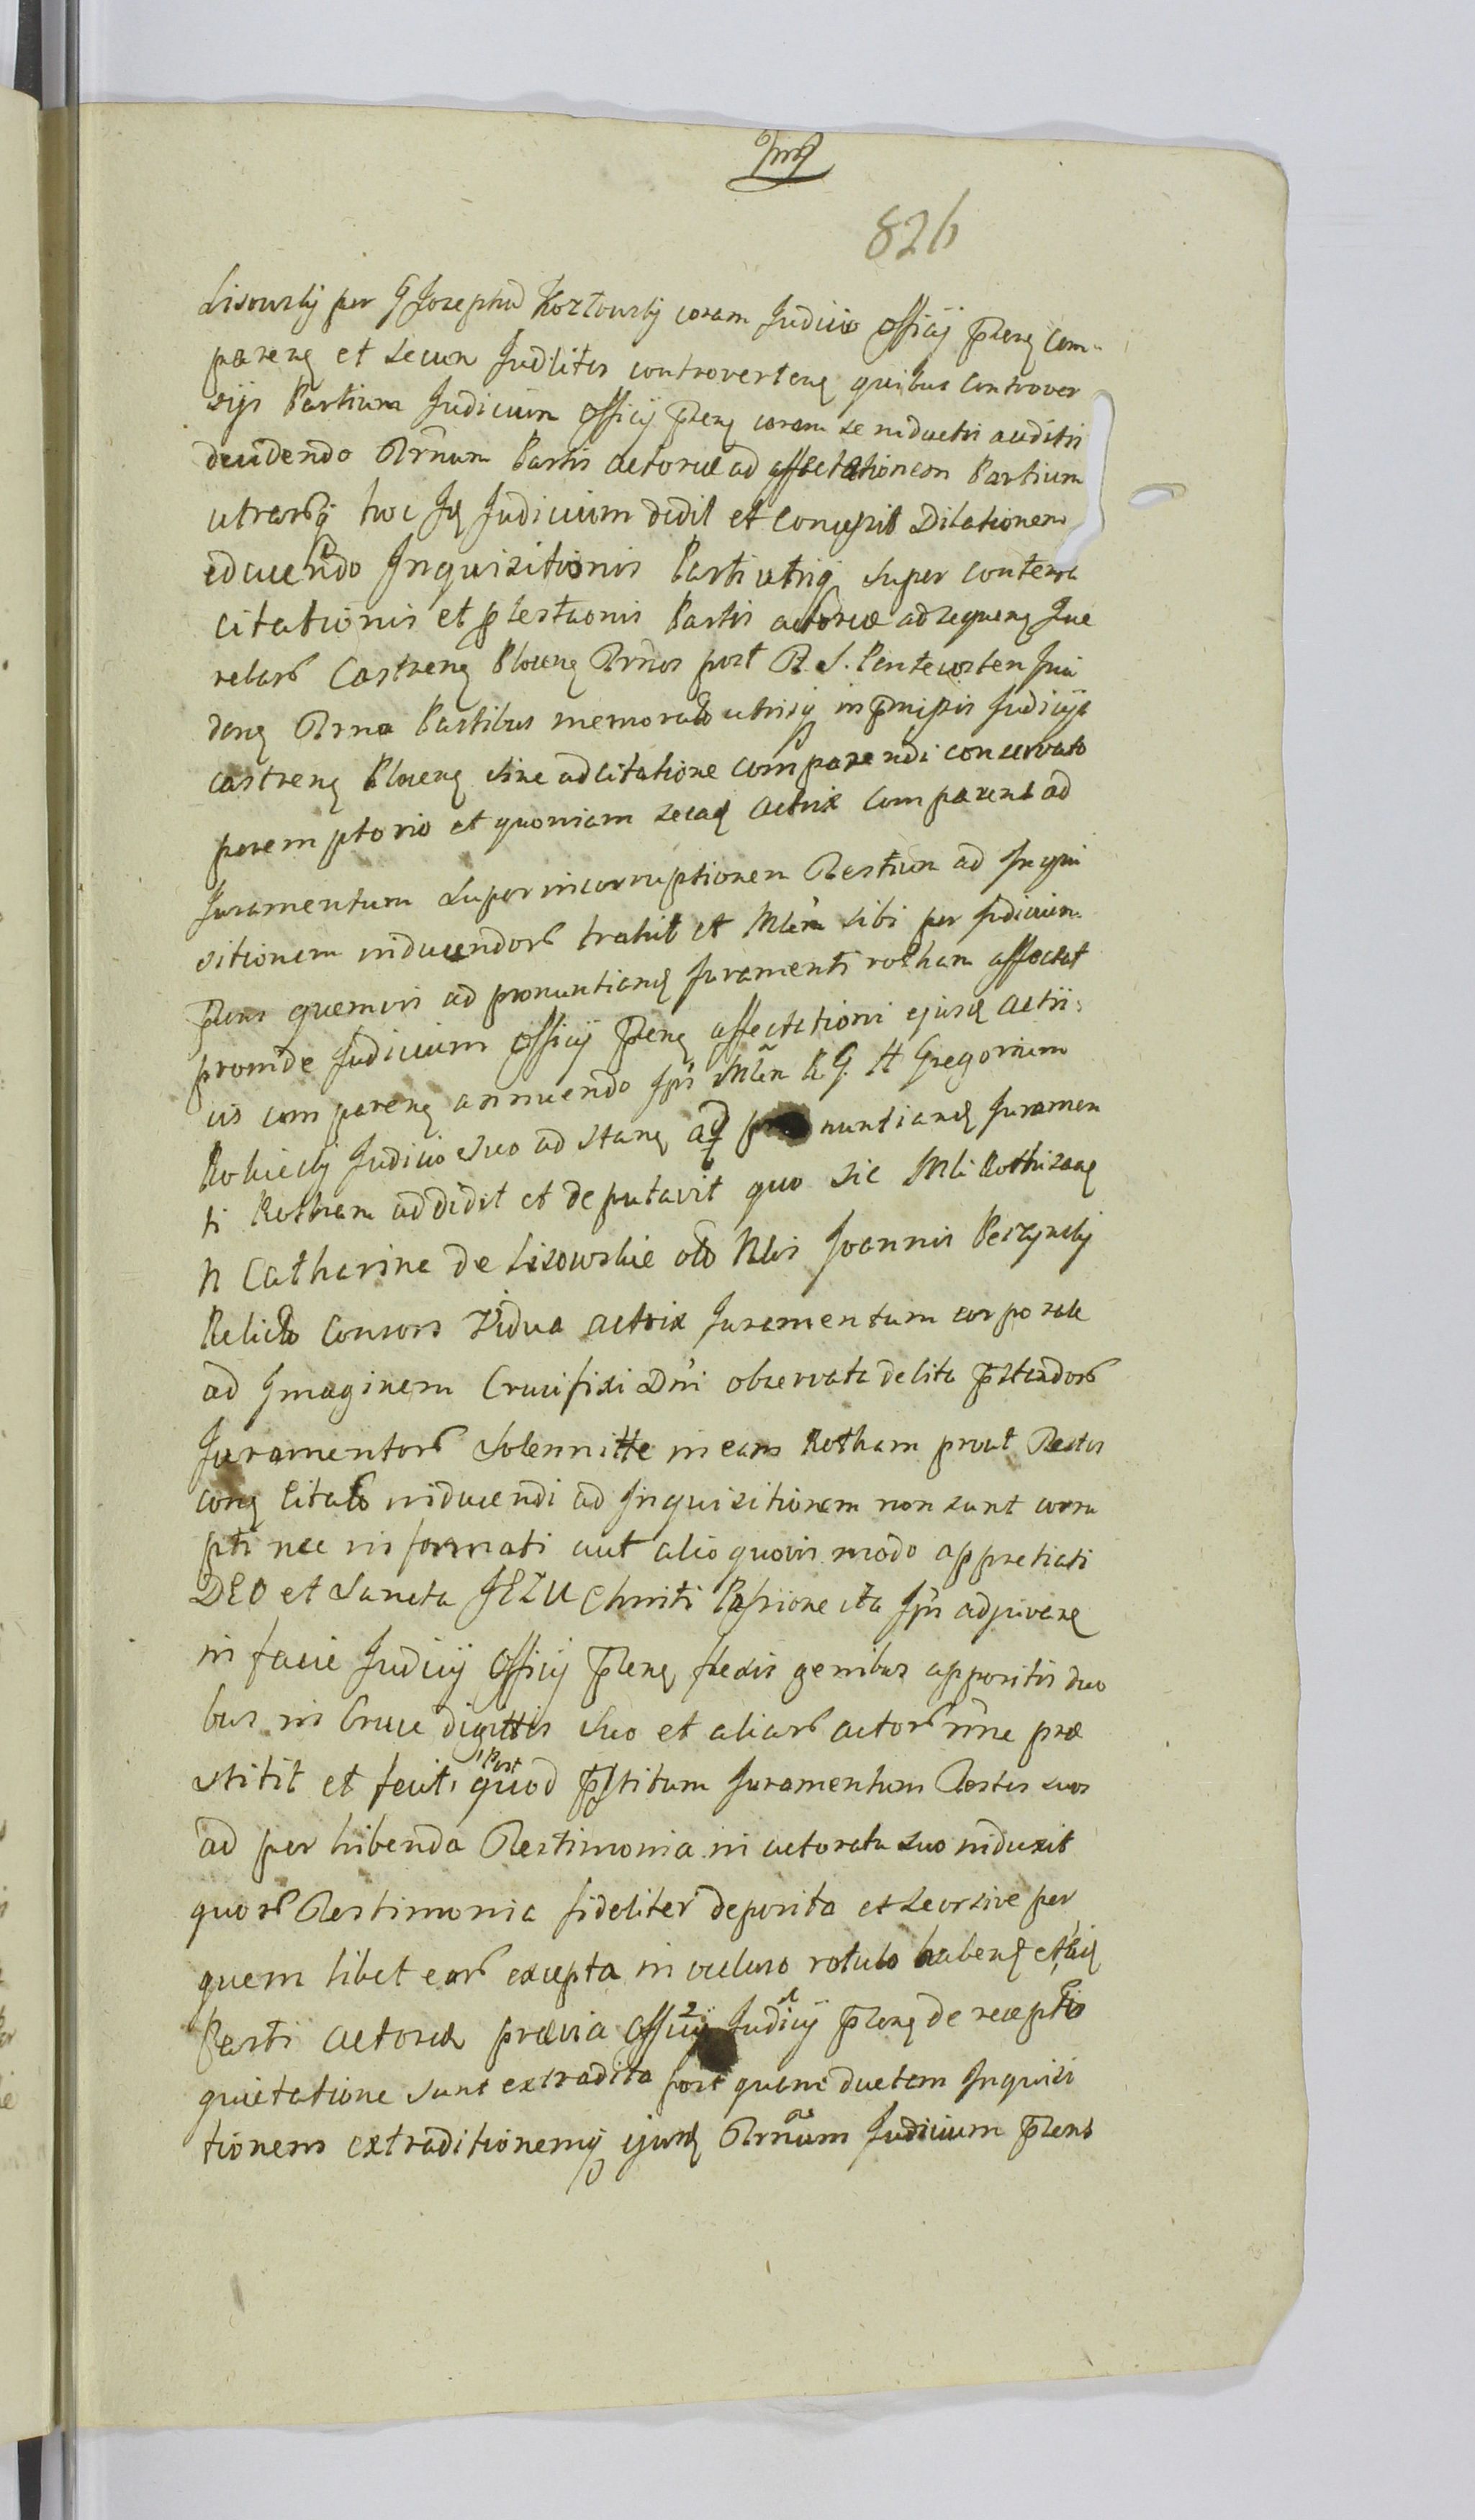 826
Lisowskij per G Josephũ Kozłowskij coram Judicio Officij p̃leng com-
pareng et secun Judliter controverteng quibus Controver
sijs Partium Judicium Officij p̃leng coram se inductis auditis
decidendo Trñum Partis actoreæ ad affectationem Partium
utrarsq hoc Jg Judicium dedit et concessit Dilationem
educendo Inquisitionis Parti utriq super contenta
citationis et ptestaonis Partis actoreæ ad sequeng Que
relars Castreng Ploceng Trños post R. S. Pentecosten Jnci
deng Trno Partibus memorato utrisq in p̃missis Judicijs
castreng Ploceng sine adcitatione comparendi conservato
peremptorio et quoniam eead Actrix comparens ad
Juramentum super incorruptionem Testium ad Inqui
sitionem inducendors trahit et Mlem sibi per Judicium
p̃lens quemvis ad pronuntiand Juramenti rotham affectat
proinde Judicium Officij p̃leng affectationi ejusd actri-
cis compareng annuendo Jpsi Mlem R. G. H Gregorium
Judicio suo ad stang ad nuntiand Juramen
ti Rotham addidit et deputavit quo sic Mli Rothisang
N Catharina de Lisowskie olo Nlis Joannis Peszynskij
Relicto Consors Vidua actrix Juramentum corporale
ad Imaginem Crucifixi Dñi observata delita p̃standors
Juramentors Solennitte in eam Rotham prout Testes
cong citato inducendi ad Inquisitionem non sunt corru
pti nec informati aut alio quovis modo appretiati
DEO et Sancta JEZU Christi Passione ita Jpsi adjuvang
in facie Judicij Officij p̃leng flexis genibus appositis duo
bus in Cruce digittis suo et aliars actors nñe præ
stitit et fecit, Post quod p̃stitum Juramentum Testes suos
ad perhibenda Testimonia in actoratu suo induxit
quors Testimonia fideliter deposita et seorsive per
quemlibet eors excepta in occluso rotulo habeng
Parti actoreæ prævia Officij Judicij p̃leng de recepto
quietatione sunt extradita post quam ductam Inquisi
tionem extraditionemq ejusd Trñum Judicium p̃lens